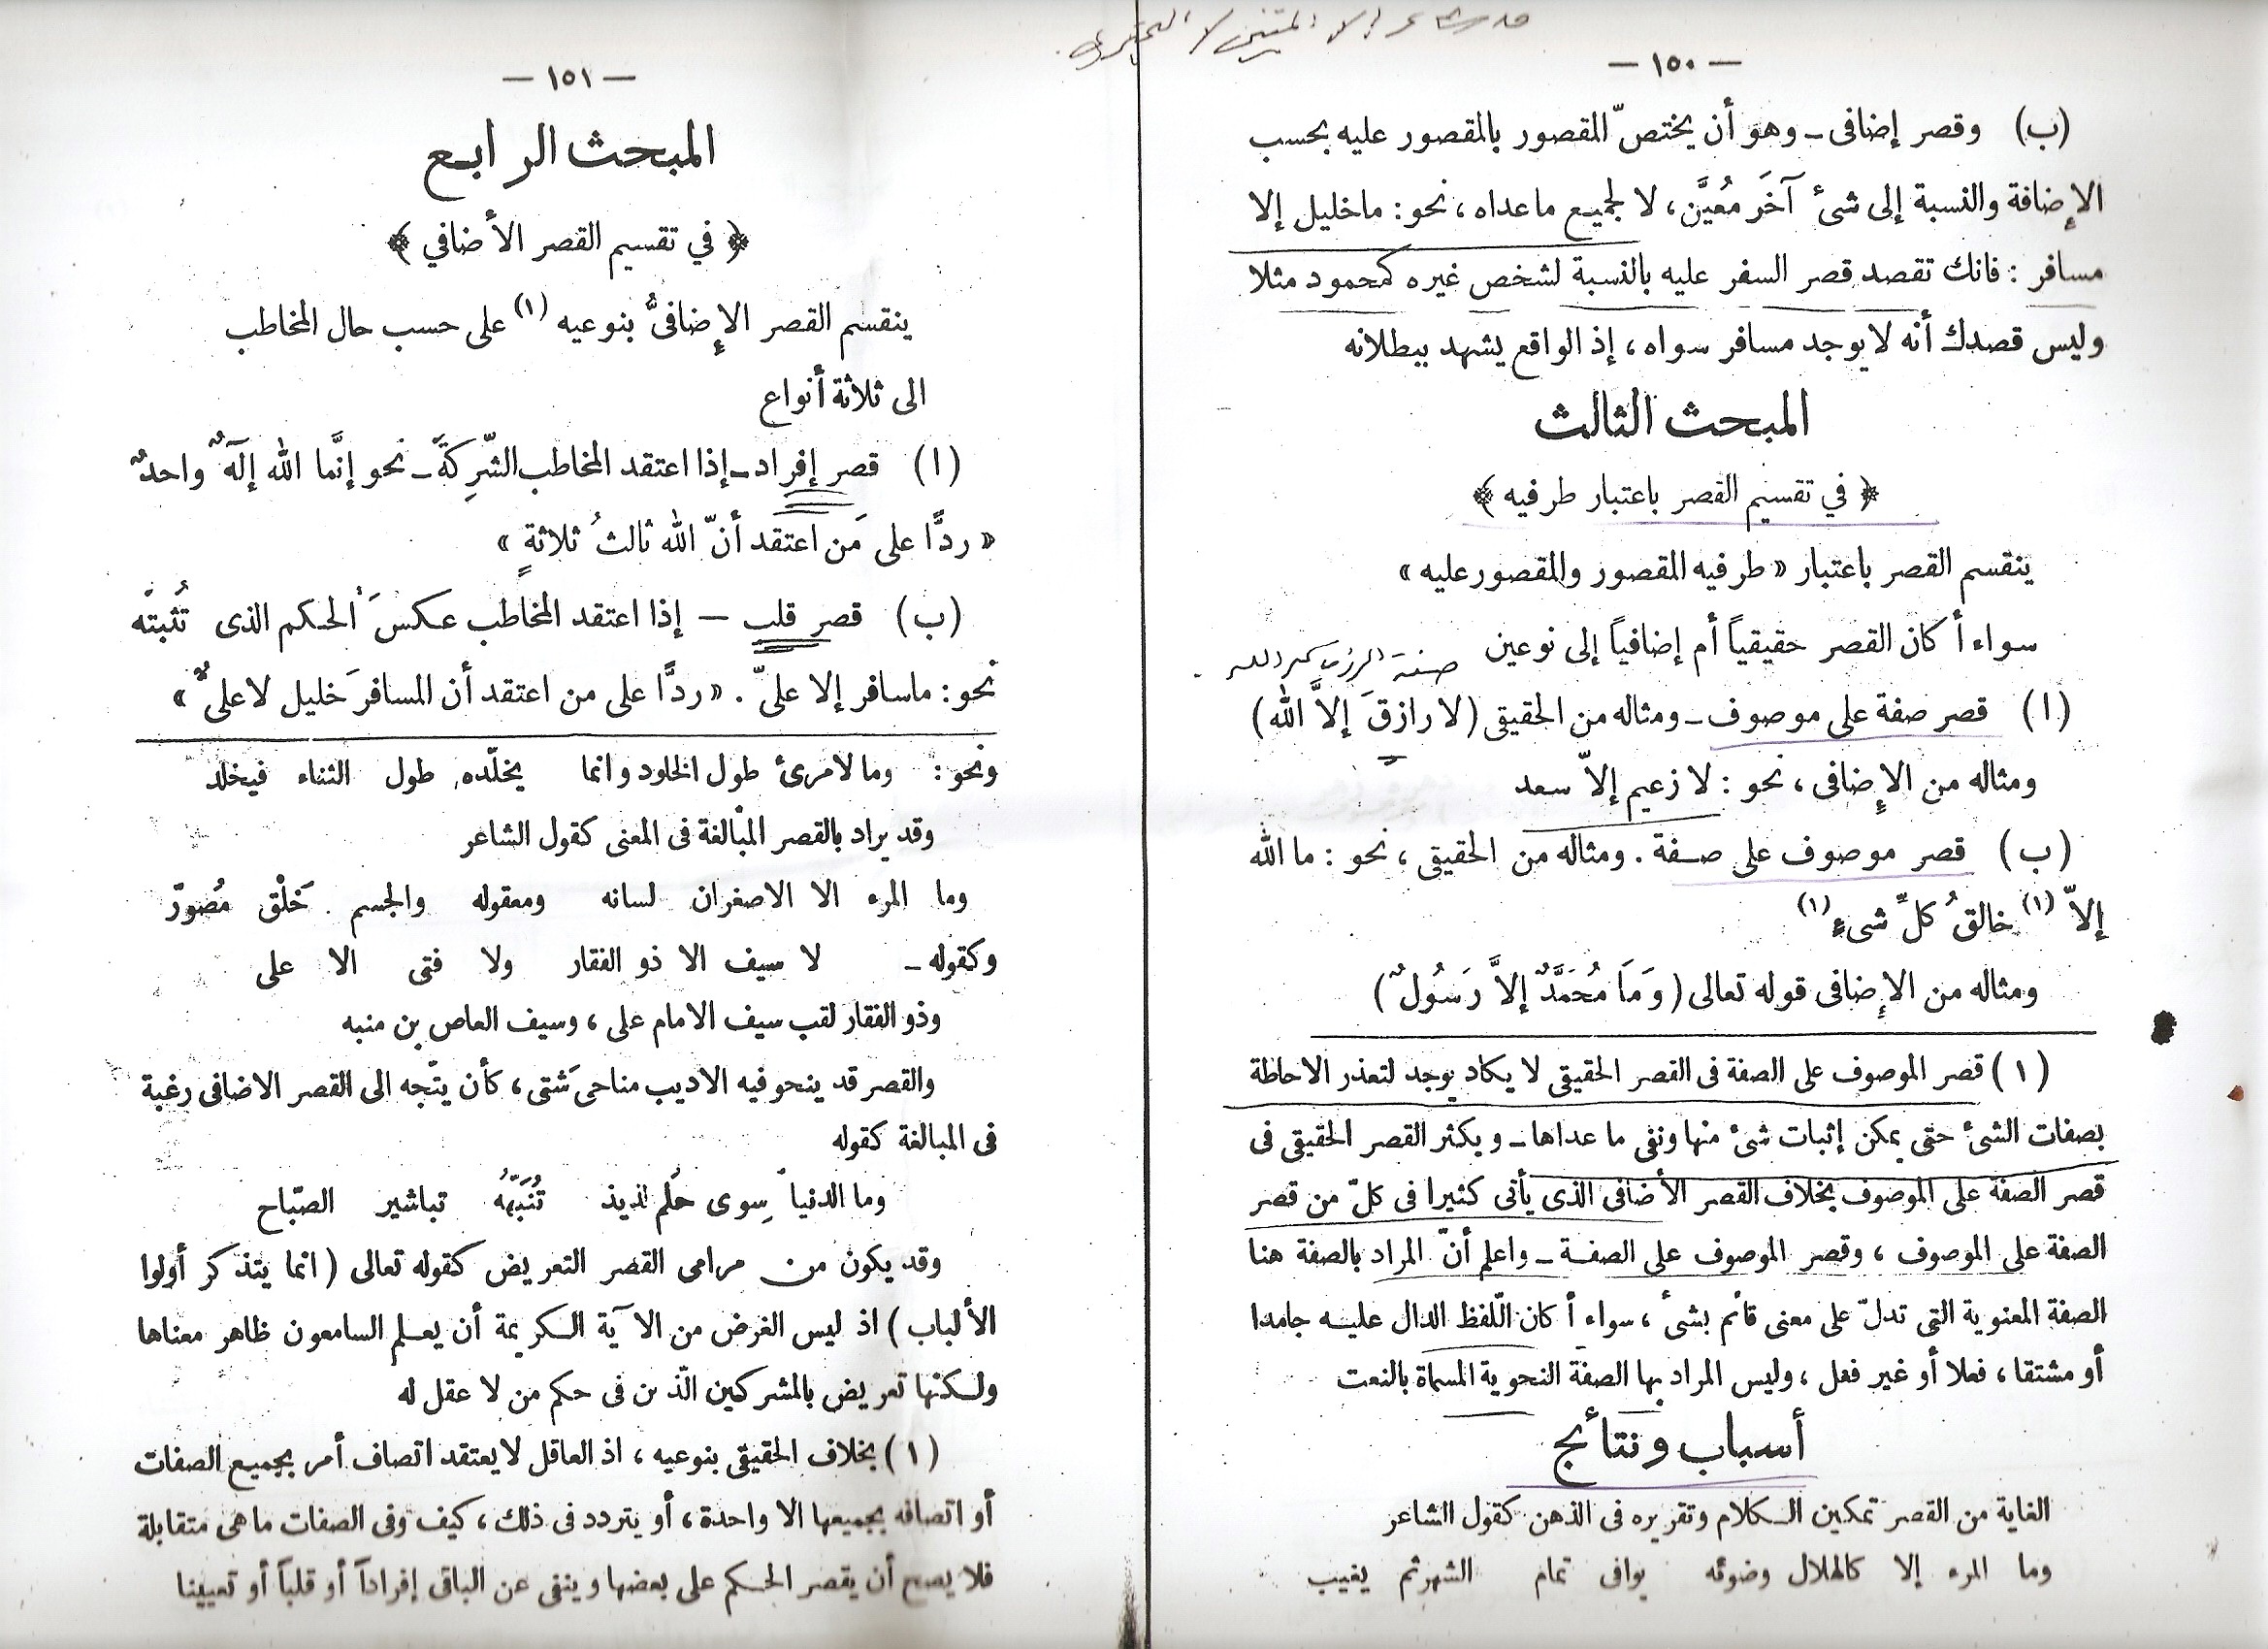 — ١٥٠ —
(ب) وقصر إضافى ــ وهو أن يختصّ المقصور بالمقصور عليه بحسب
الإضافة والنسبة إلى شئ آخَر مُعيَّن، لا لجميع ماعداه، نحو: ماخليل إلا
مسافر : فانك تقصد قصر السفر عليه بالنسبة لشخص غيره كمحمود مثلا
وليس قصدك أنه لايوجد مسافر سواه، إذ الواقع يشهد ببطلانه
المبحث الثالث
﴿ في تقسيم القصر باعتبار طرفيه ﴾
ينقسم القصر باعتبار « طرفيه المقصور والمقصور عليه »
سواء أكان القصر حقيقياً أم إضافياً إلى نوعين
(ا) قصر صفة على موصوف ــ ومثاله من الحقيقى (لا رازقَ إلاَّ الله)
ومثاله من الإضافى، نحو : لا زعيم إلاّ سعد
(ب) قصر موصوف على صفة . ومثاله من الحقيقى، نحو : ما الله
إلاّ (١) خالقُ كلِّ شىءٍ (١)
ومثاله من الإضافى قوله تعالى (وَمَا مُحَمَّدٌ إلاَّ رَسُولٌ)
(١) قصر الموصوف على الصفة فى القصر الحقيقى لا يكاد يوجد لتعذر الاحاطة
بصفات الشئ حتى يمكن إثبات شئ منها ونفى ما عداها ــ ويكثر القصر الحقيقى فى
قصر الصفة على الموصوف بخلاف القصر الأضافى الذى يأتى كثيرا فى كلّ من قصر
الصفة على الموصوف، وقصر الموصوف على الصفة ــ واعلم أنّ المراد بالصفة هنا
الصفة المعنوية التى تدلّ على معنى قائم بشئ، سواء أكان اللّفظ الدال عليه جامدا
أو مشتقا، فعلا أو غير فعل، وليس المراد بها الصفة النحوية المسماة بالنعت
أسباب ونتائج
الغاية من القصر تمكين الكلام وتقريره فى الذهن كقول الشاعر
وما المرء إلا كالهلال وضوئه يوافى تمام الشهر ثم يغيب
— ١٥١ —
المبحث الرابع
﴿ في تقسيم القصر الأضافي ﴾
ينقسم القصر الإضافىُّ بنوعيه (١) على حسب حال المخاطب
الى ثلاثة أنواع
(ا) قصر إفراد ــ إذا اعتقد المخاطب الشّرِكةَ ــ نحو إنَّما الله إلَهٌ واحدٌ
« ردًّا على مَن اعتقد أنّ الله ثالثُ ثلاثةٍ »
(ب) قصر قلب — إذا اعتقد المخاطب عكسَ الحكم الذى تُثبتُه
نحو: ماسافر إلا علىّ . « ردًّا على من اعتقد أن المسافرَ خليل لاعلىٌّ »
ونحو: وما لامرئ طول الخلود وانما يخلّده طول الثناء فيخلد
وقد يراد بالقصر المبالغة فى المعنى كقول الشاعر
وما المرء الا الاصغران لسانه ومعقوله والجسم خَلْق مُصوّر
وكقوله ــ لا سيف الا ذو الفقار ولا فتى الا على
وذو الفقار لقب سيف الامام على، وسيف العاص بن منبه
والقصر قد ينحو فيه الاديب مناحى شتى، كأن يتّجه الى القصر الاضافى رغبة
فى المبالغة كقوله
وما الدنيا سِوى حُلم لذيذ تُنَبّهُه تباشير الصّباح
وقد يكون من مرامى القصر التعريض كقوله تعالى (انما يتذكر أولوا
الألباب) اذ ليس الغرض من الآية الكريمة أن يعلم السامعون ظاهر معناها
ولكنها تعريض بالمشركين الّذين فى حكم من لا عقل له
(١) بخلاف الحقيقى بنوعيه، اذ العاقل لايعتقد اتصاف أمر بجميع الصفات
أو اتصافه بجميعها الا واحدة، أو يتردد فى ذلك، كيف وفى الصفات ماهى متقابلة
فلا يصح أن يقصر الحكم على بعضها وينفى عن الباقى إفراداً أو قلباً أو تعيينا